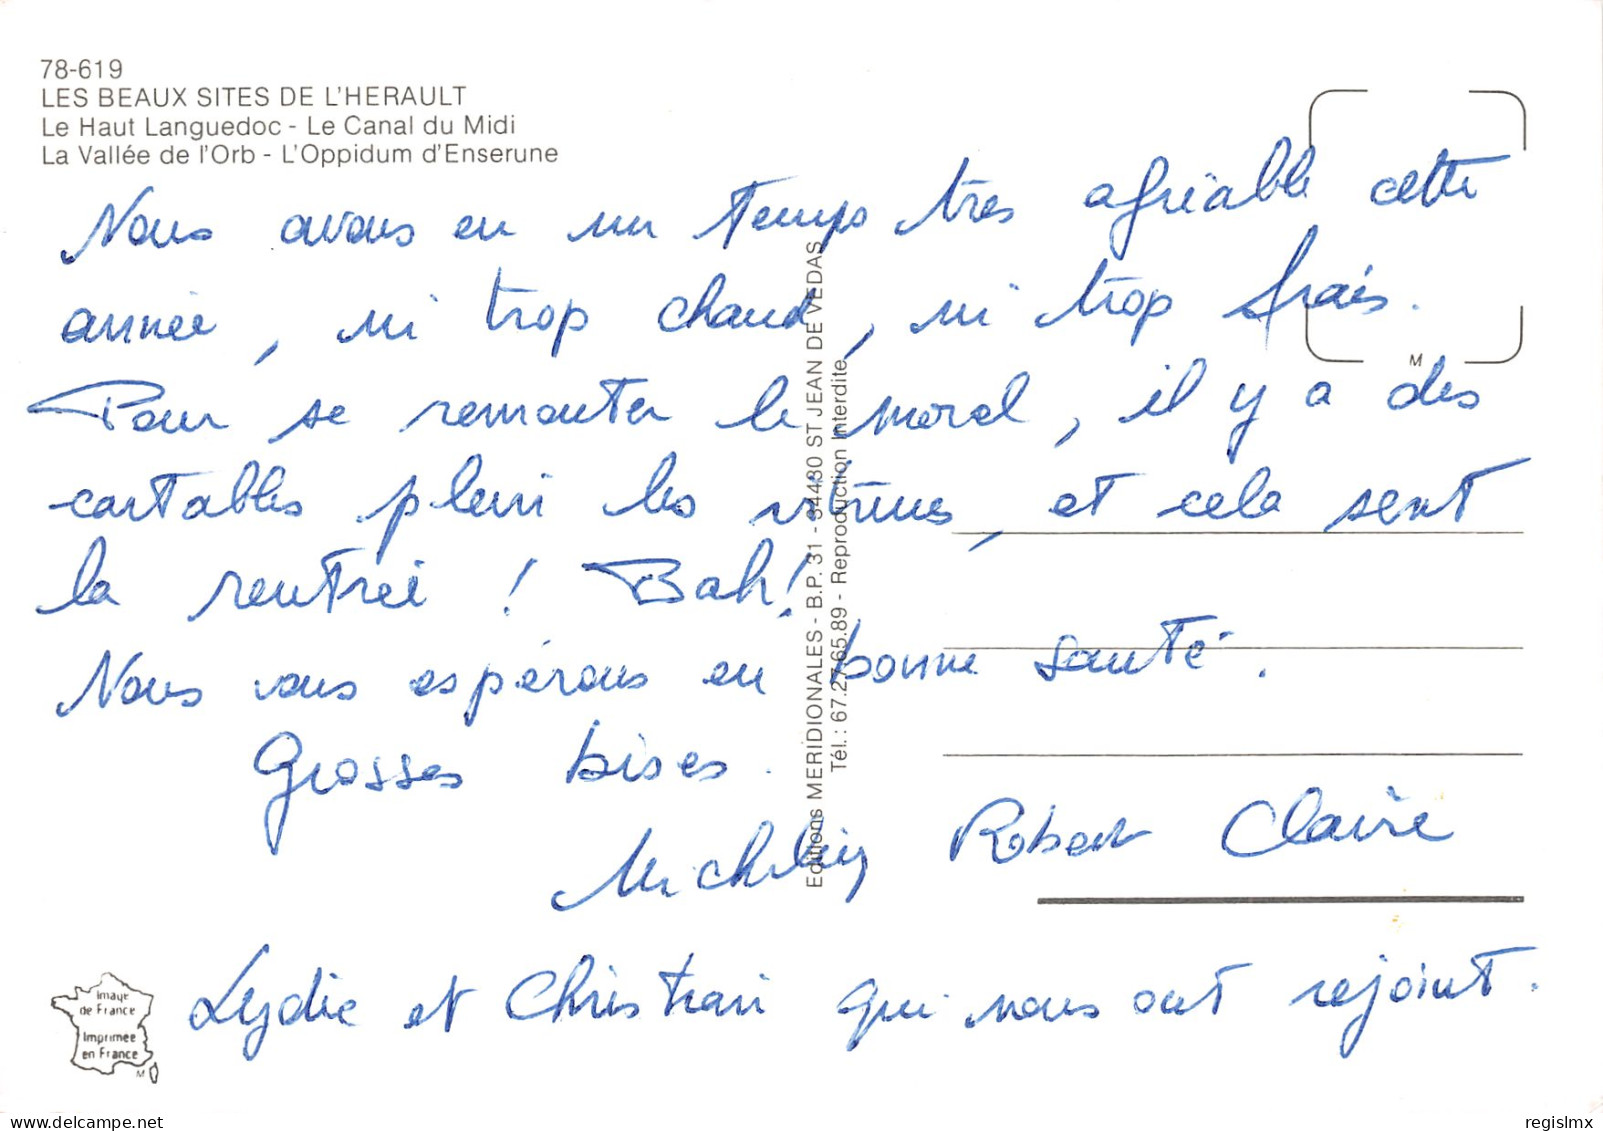 78-619
LES BEAUX SITES DE L'HERAULT
Le Haut Languedoc - Le Canal du Midi
La Vallée de l'Orb - L'Oppidum d'Enserune
Nous avons eu un temps très agréable cette
année, ni trop chaud, ni trop frais.
Pour se remonter le moral, il y a des
cartables plein les vitrines, et cela sent
la rentrée ! Bah !
Nous vous espérons en bonne santé.
Grosses bises.
Robert Claire
Lydie et Christian qui nous ont rejoint.
Editions MERIDIONALES - B.P. 31 - 34430 ST JEAN DE VEDAS
Tél.: 67.27.65.89 - Reproduction Interdite
M
Image
de France
Imprimée
en France
M
delcampe.net
regislmx